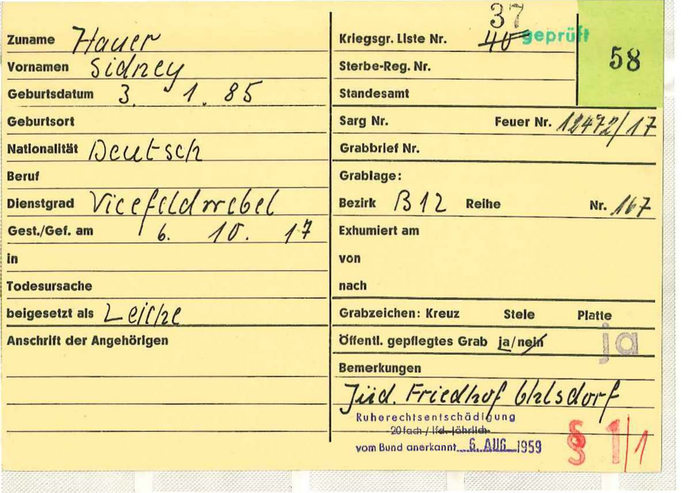 Zuname Hauer
Vornamen Sidney
Geburtsdatum 3. 1. 85
Geburtsort
Nationalität Deutsch
Beruf
Dienstgrad Vicefeldwebel
Gest./Gef. am 6. 10. 17
in
Todesursache
beigesetzt als Leiche
Anschrift der Angehörigen
37
Kriegsgr. Liste Nr. 40 geprüft
58
Sterbe-Reg. Nr.
Standesamt
Sarg Nr. Feuer Nr. 12472/17
Grabbrief Nr.
Grablage:
Bezirk B12 Reihe Nr. 167
Exhumiert am
von
nach
Grabzeichen: Kreuz Stele Platte
Öffentl. gepflegtes Grab ja/nein ja
Bemerkungen
Jüd. Friedhof Ohlsdorf
Ruherechtsentschädigung
20fach / lfd. jährlich
vom Bund anerkannt 6. AUG. 1959
§ 1/1